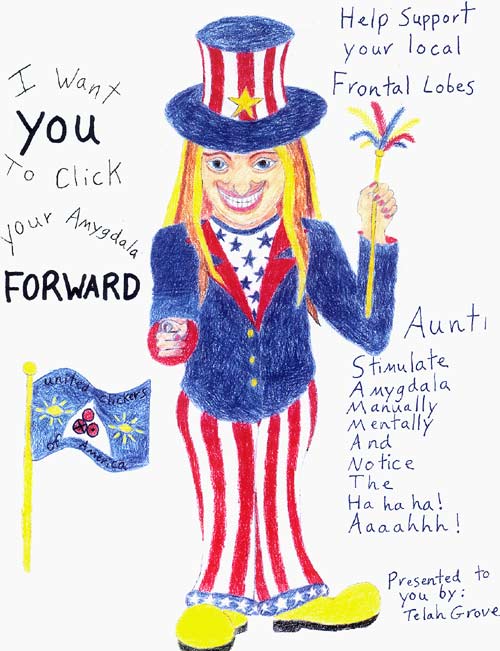 I Want
YOU
To Click
your Amygdala
FORWARD
Help Support
your local
Frontal Lobes
Aunti
Stimulate
Amygdala
Manually
Mentally
And
Notice
The
Ha ha ha!
Aaaahhh!
united clickers
of america
Presented to
you by:
Telah Grove